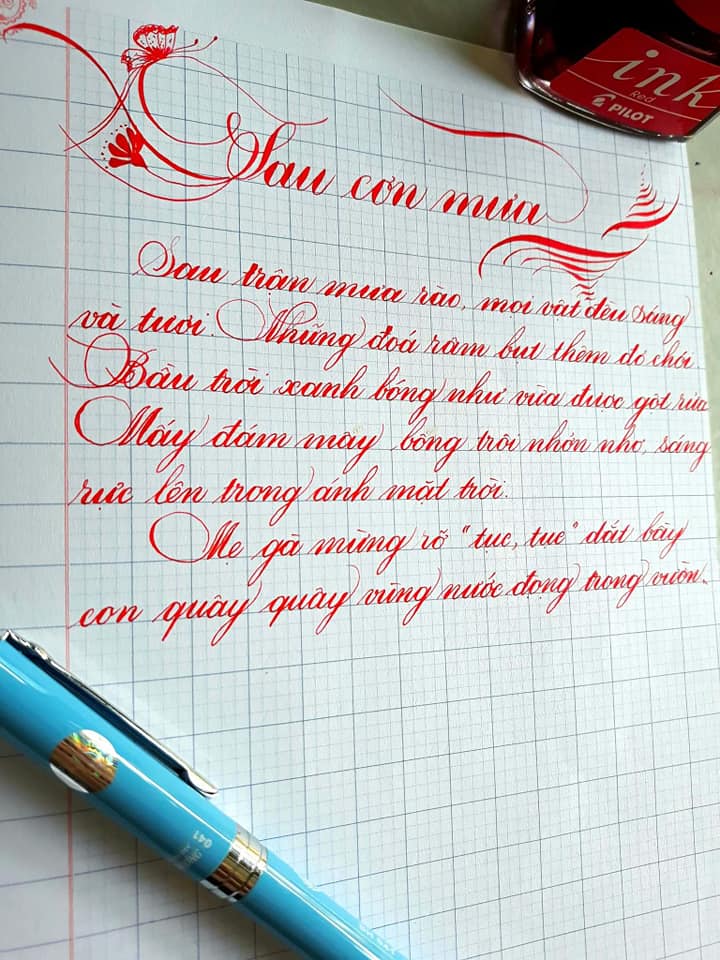 ink
Red
PILOT
Sau cơn mưa
Sau trận mưa rào, mọi vật đều sáng
và tươi. Những đoá râm bụt thêm đỏ chói.
Bầu trời xanh bóng như vừa được gột rửa
Mấy đám mây bông trôi nhởn nhơ, sáng
rực lên trong ánh mặt trời.
Mẹ gà mừng rỡ "tục, tục" dắt bầy
con quây quây vũng nước đọng trong vườn..
041